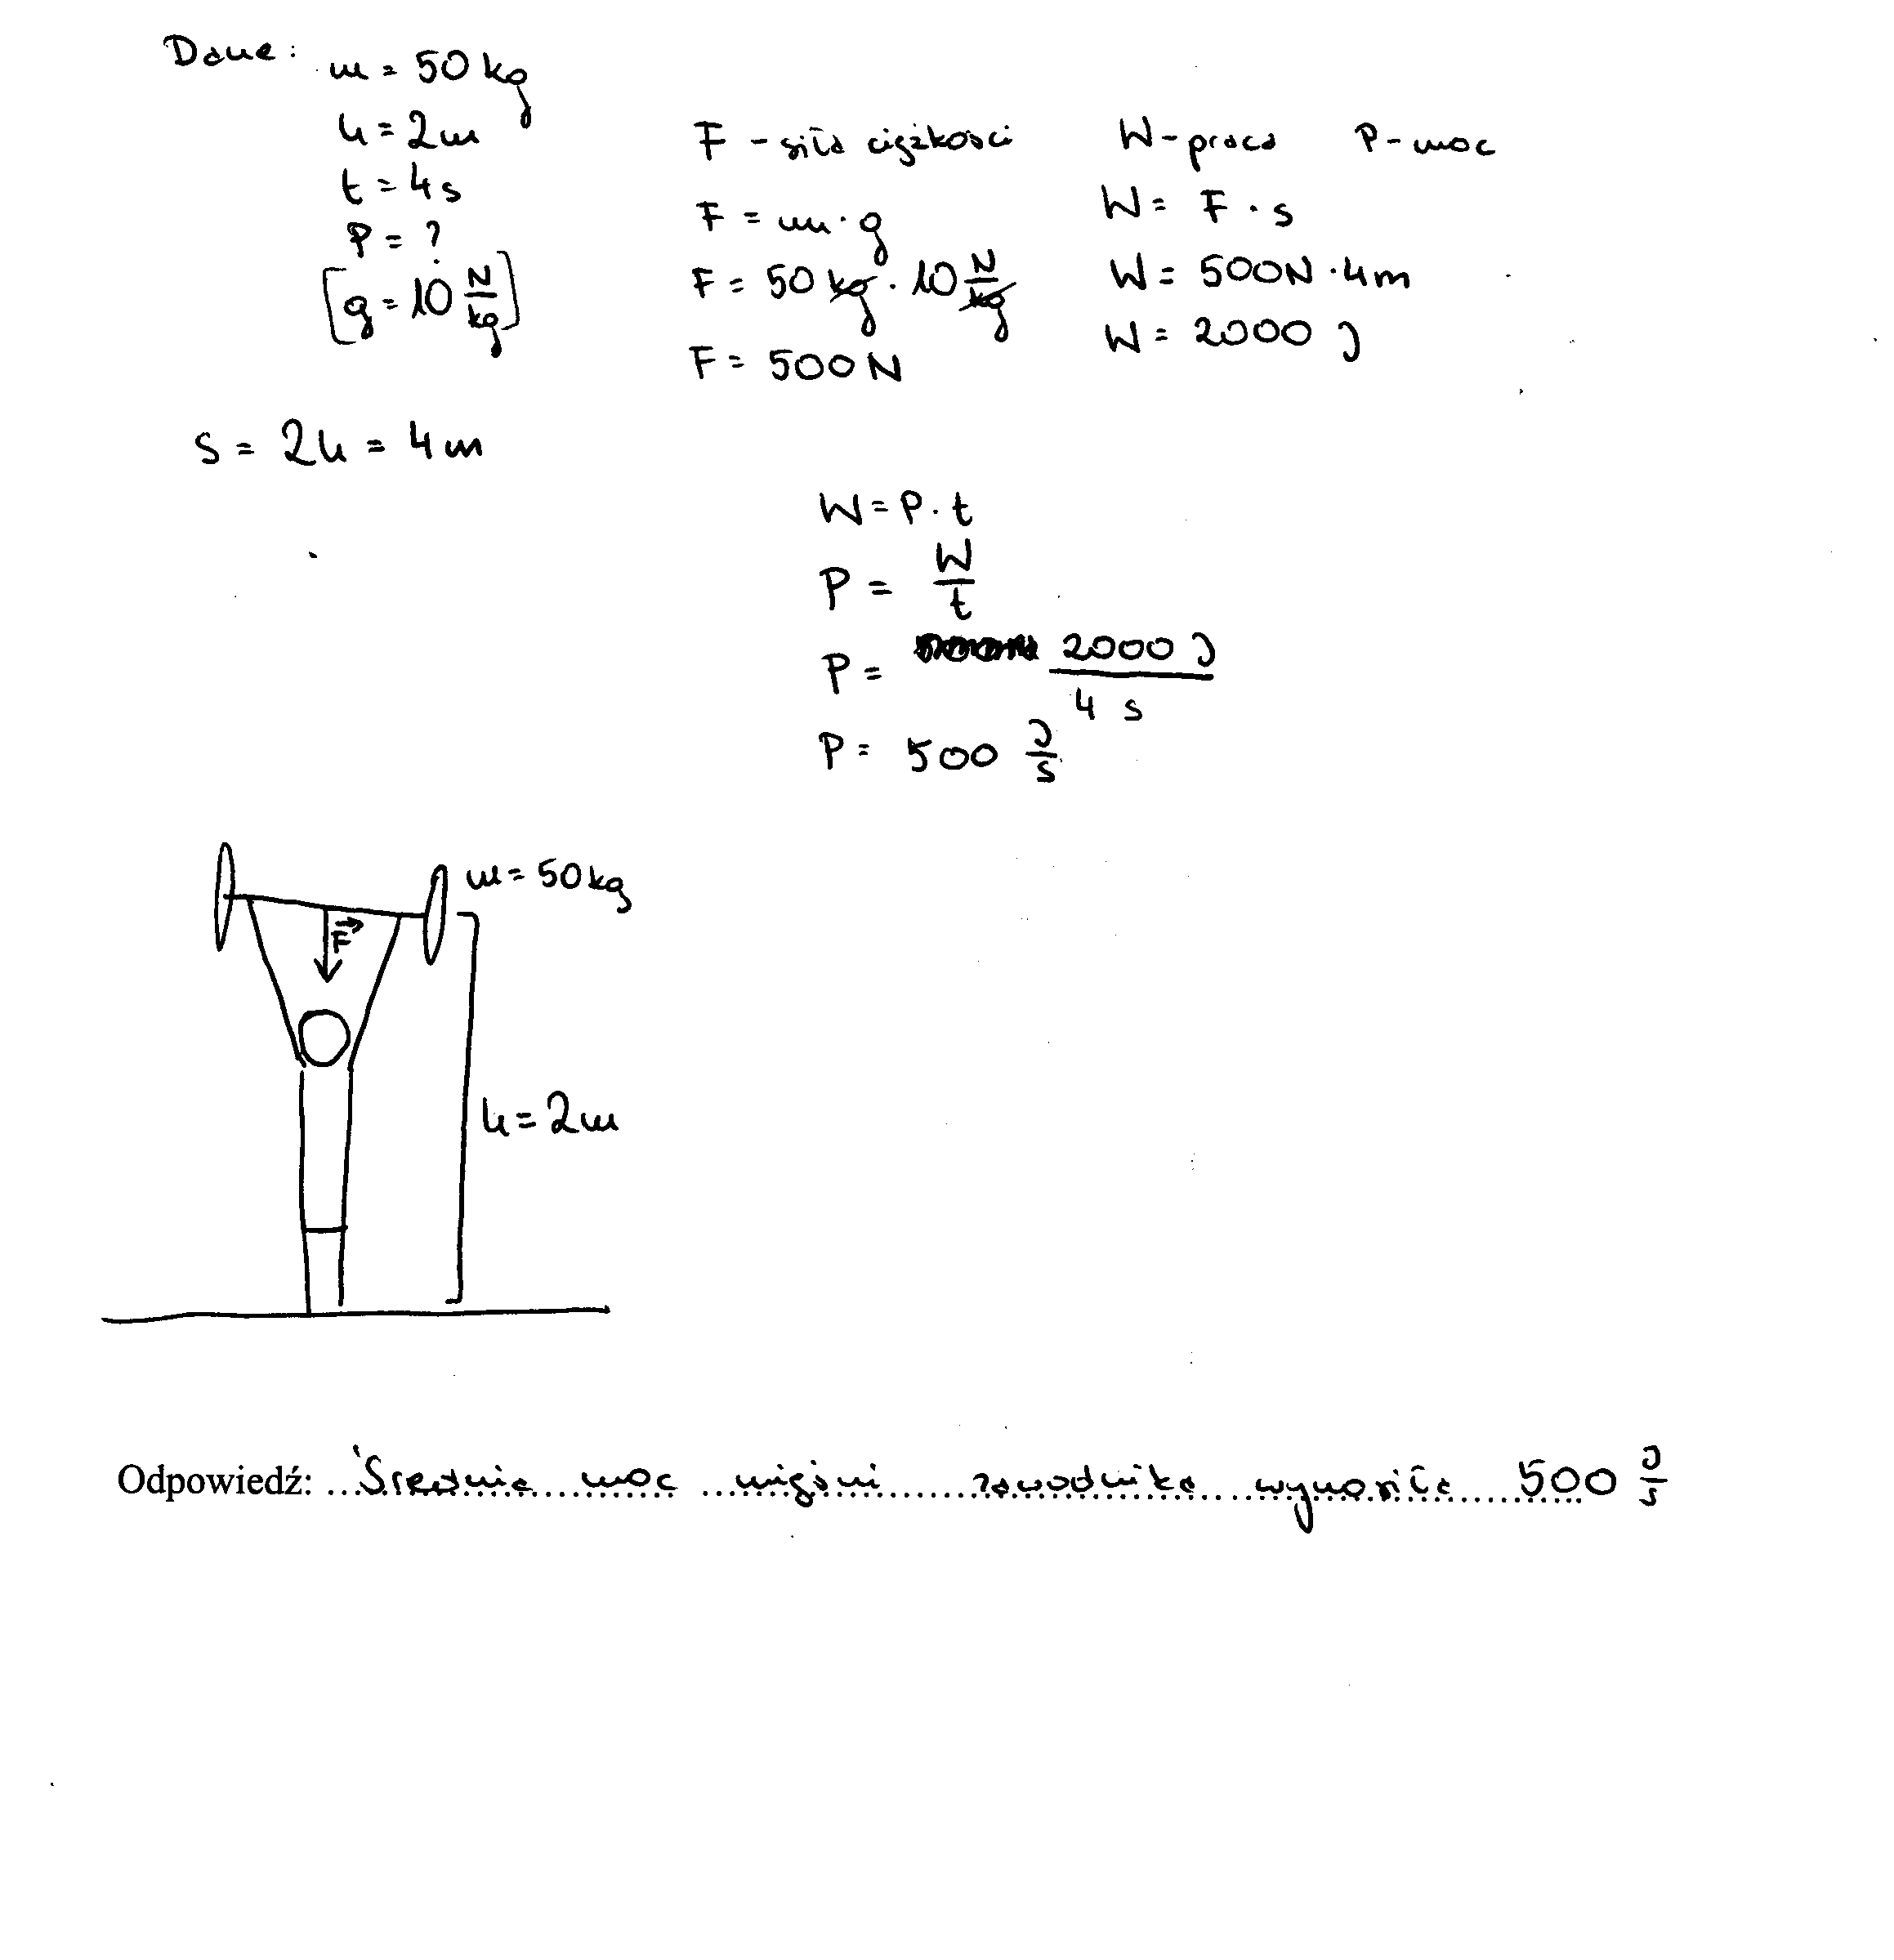 Dane: m = 50 kg
h = 2m
t = 4s
P = ?
[g = 10 N/kg]
s = 2h = 4m
F - siła ciężkości
F = m · g
F = 50 kg · 10 N/kg
F = 500 N
W - praca P - moc
W = F · s
W = 500N · 4m
W = 2000 J
W = P · t
P = W/t
P = 2000 J / 4 s
P = 500 J/s
m = 50 kg
F
h = 2m
Odpowiedź: Średnia moc mięśni zawodnika wynosiła 500 J/s